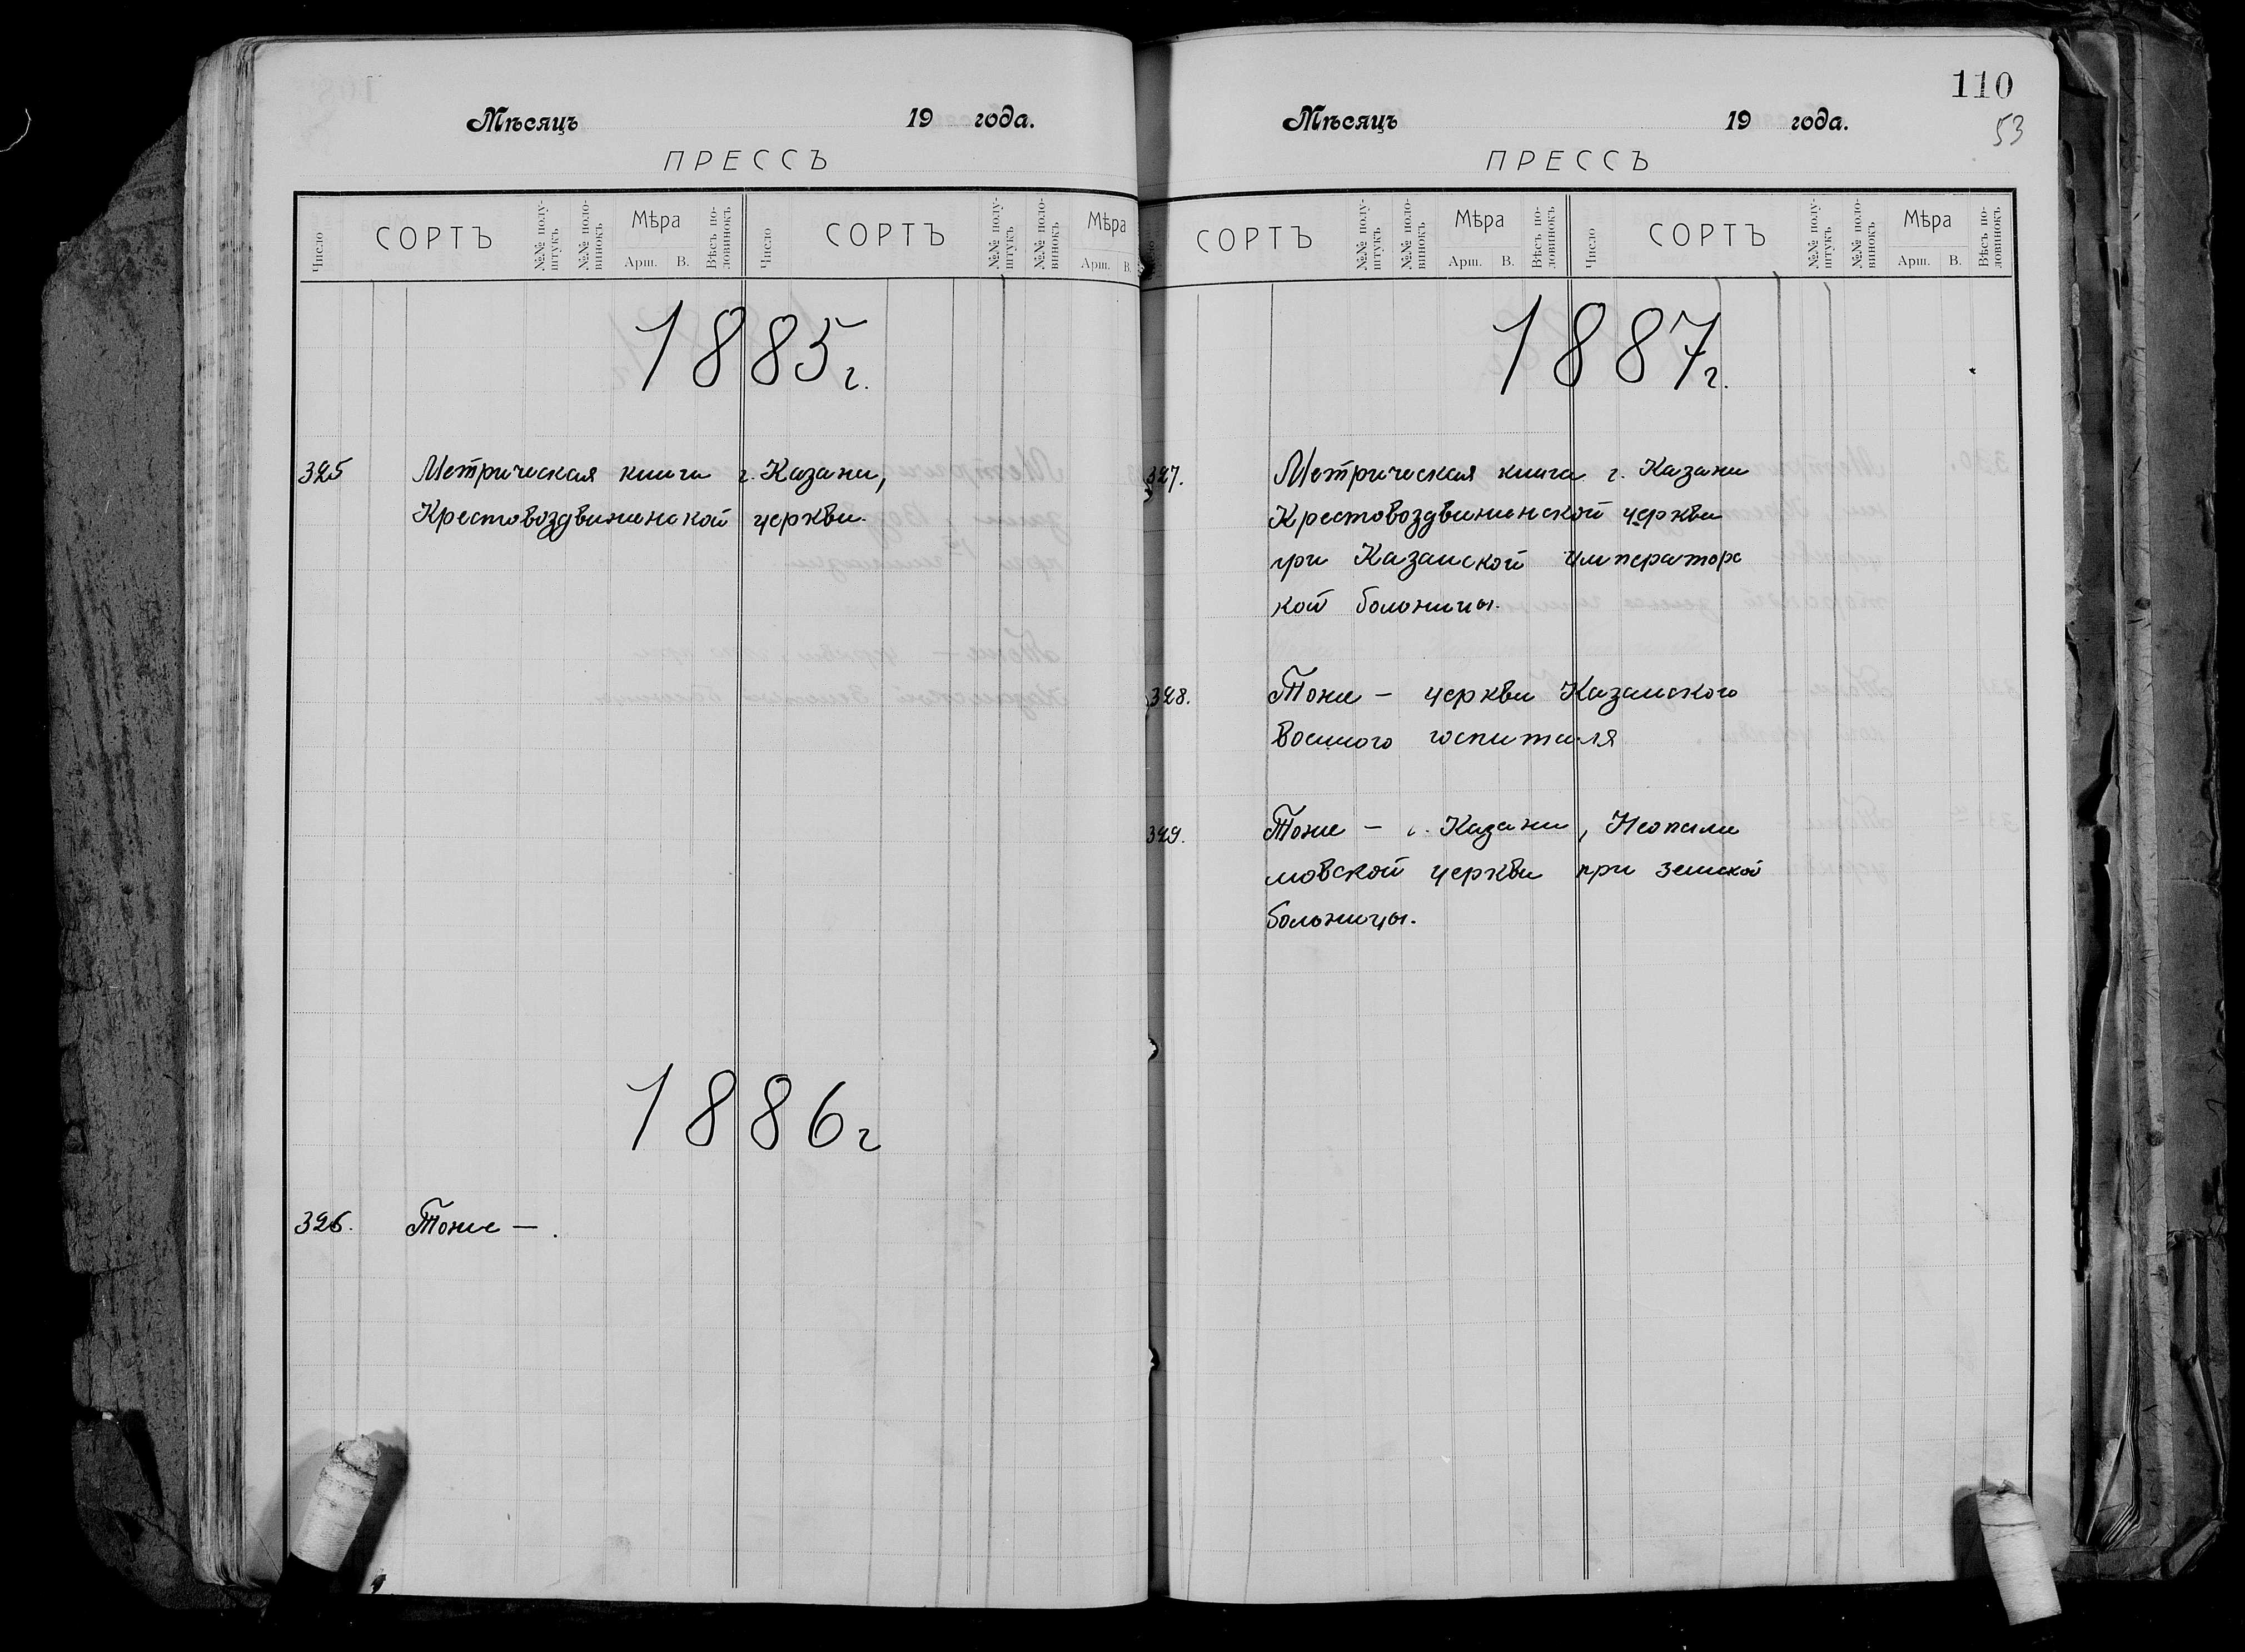 Мѣсяцъ 19 года.
ПРЕССЪ
Число СОРТЪ №№ полу-штукъ №№ поло-винокъ Мѣра Арш. В. Вѣсъ по-ловинокъ Число СОРТЪ №№ полу-штукъ №№ поло-винокъ Мѣра Арш. В.
1885 г.
325 Метрическая книга г. Казани,
Крестовоздвиженской церкви.
1886 г
326. Тоже — .
110
53
Мѣсяцъ 19 года.
ПРЕССЪ
СОРТЪ №№ полу-штукъ №№ поло-винокъ Мѣра Арш. В. Вѣсъ по-ловинокъ Число СОРТЪ №№ полу-штукъ №№ поло-винокъ Мѣра Арш. В. Вѣсъ по-ловинокъ
1887 г.
327. Метрическая книга г. Казани
Крестовоздвиженской церкви
при Казанской императорс
кой больницы.
328. Тоже — церкви Казанского
военного госпиталя
329. Тоже — г. Казани, Неопали
мовской церкви при земской
больницы.